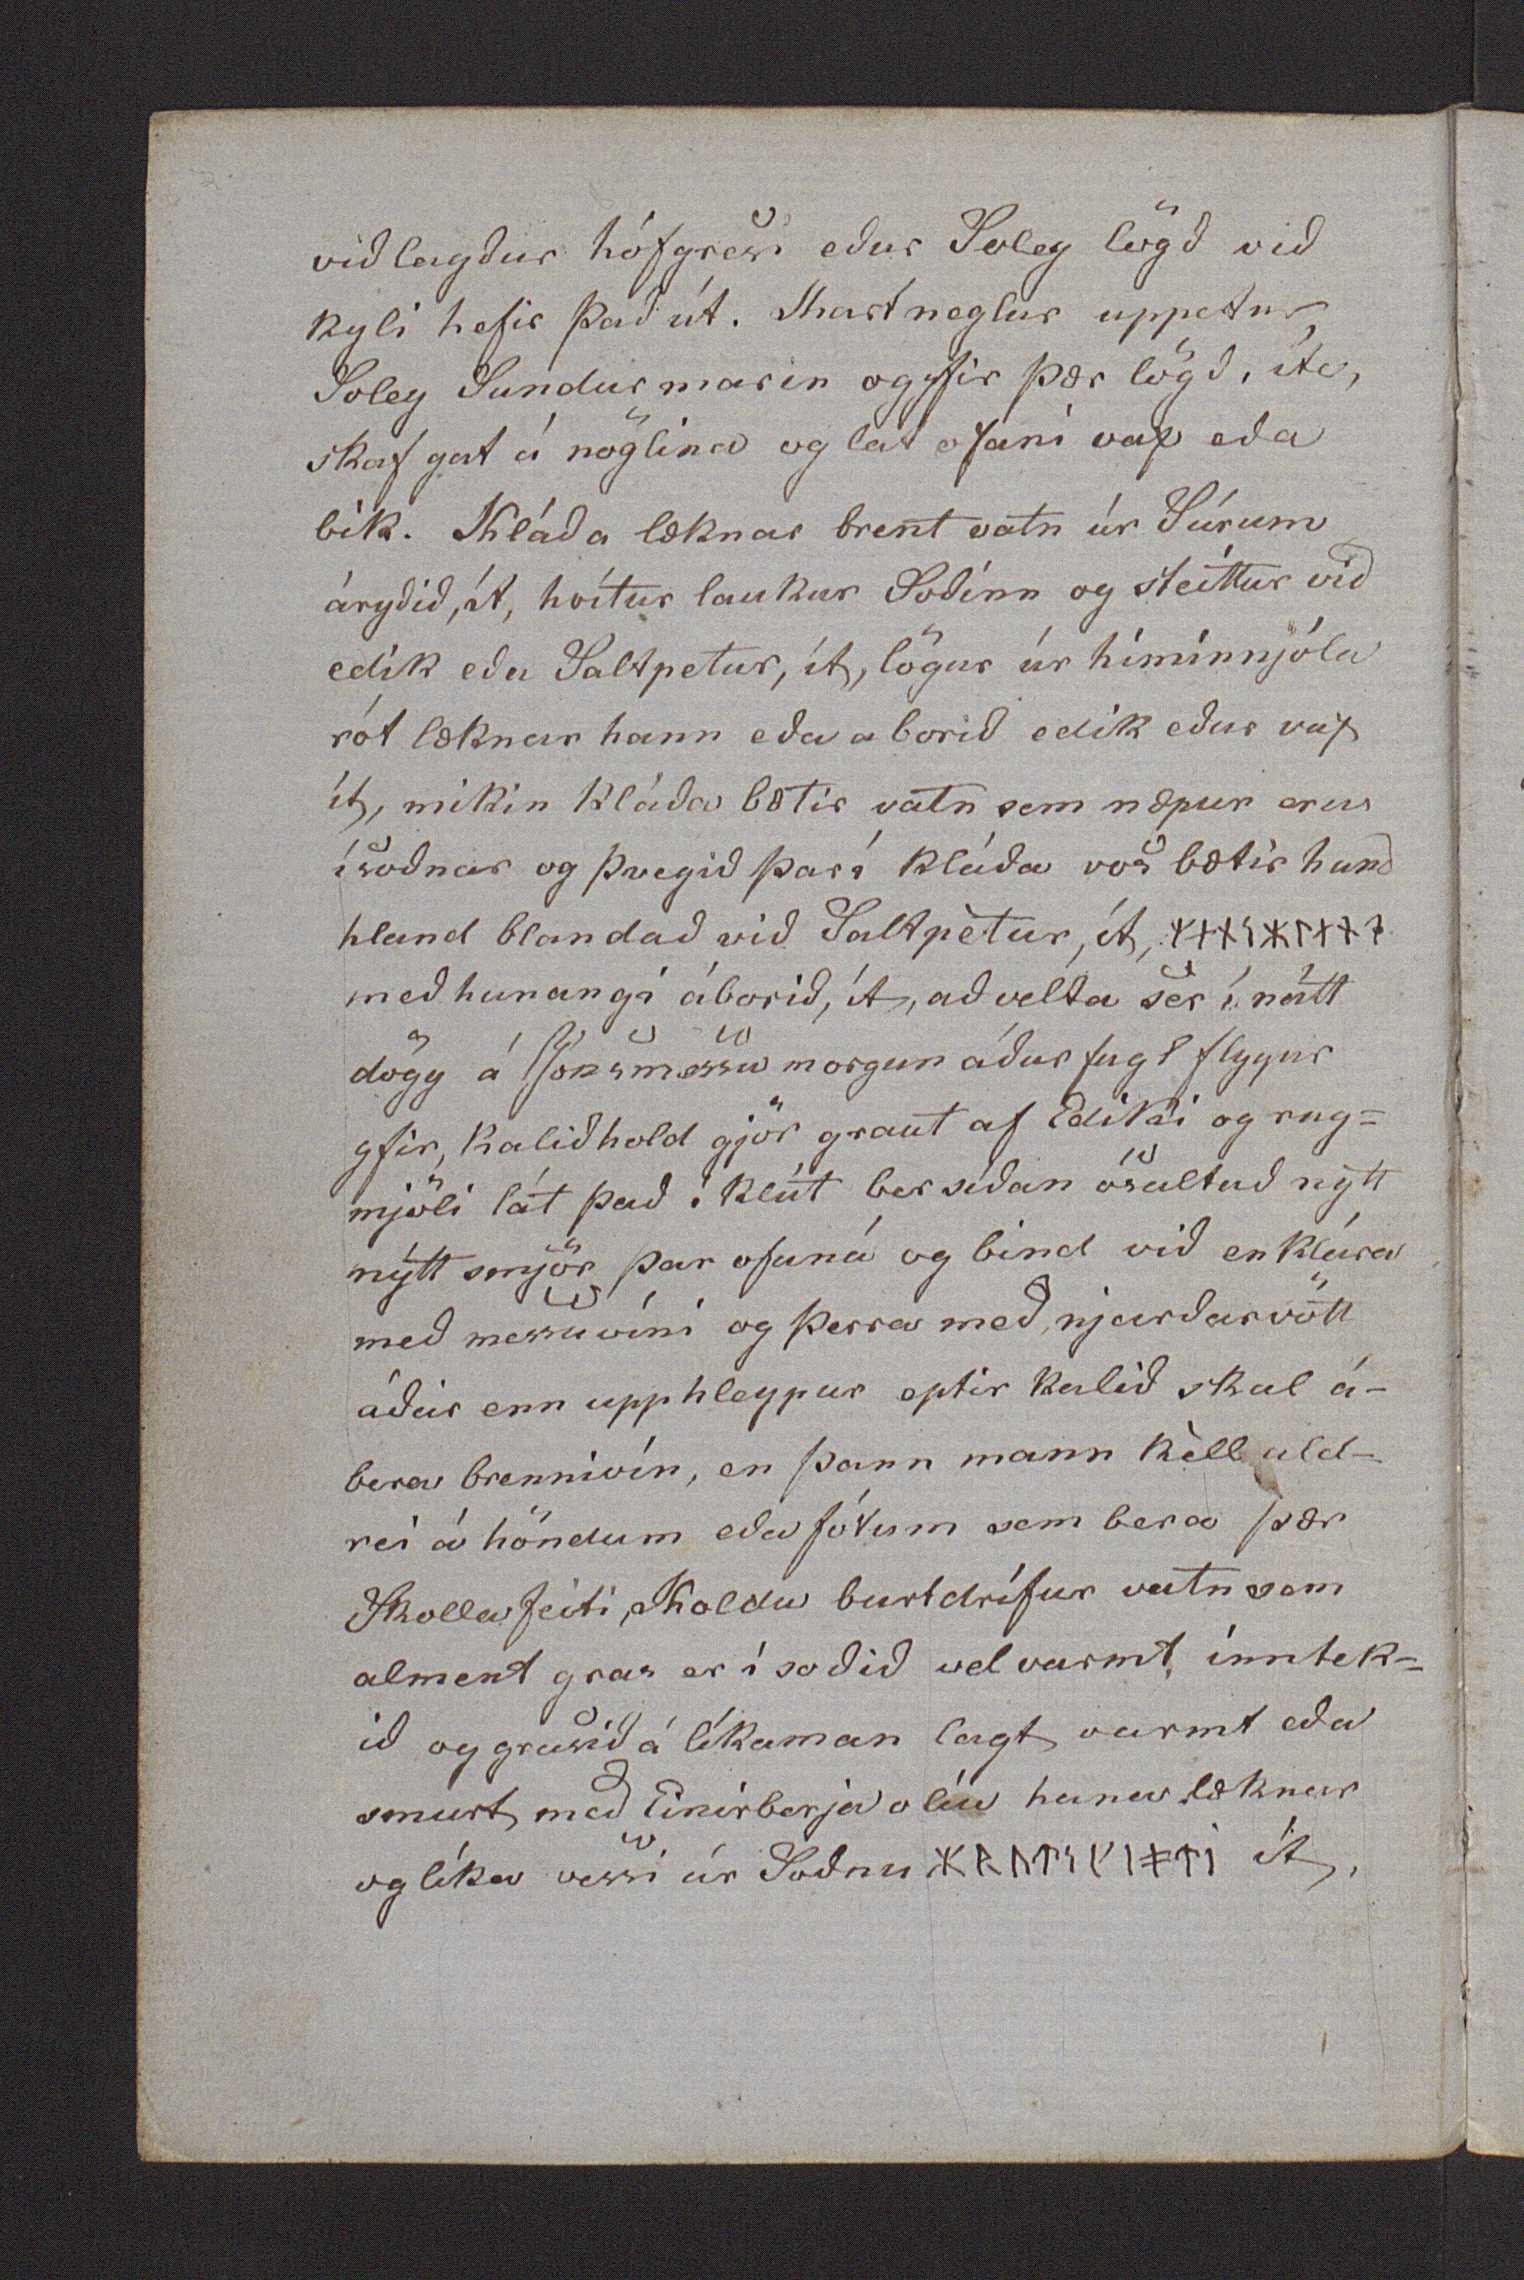 viðlagður hófgresi eður Soley lögð við
kyli hefir það út. Skarf neglur uppetur,
Soley Sundurmarin og yfir þær lögð, íte,
skaf gat á nöglina og lat ofani vax eða
bik. Kláða læknar brent vatn úr Súrum
áryðið, ít, hvítur laukur Soðinn og steittur við
edik eða Saltpetur, ít, lögur úr himinnjóla
rót læknar hann eða aborið edik eður vax
ít, mikin kláða bætir vatn sem næpur eru
ísoðnar og þvegið þarí kláða vos bætir hund
hland blandað við Saltpètur, ít,
með hunangi áborið, ít, að velta sèr í nátt
dögg á Jónsmessu morgun áður fugl flygur
yfir, kalið hold gjör graut af Ediki og rug=
mjöli lát það í klút ber síðan ósaltað nýtt
nýtt smjör þar ofaná og bind við en klára
með messuvíni og þerra með njarðarvött
áður enn upphleypur eptir kalið skal á-
bera brennivín, en þann mann kèll ald-
rei á höndum eða fótum sem bera þær
Skollafeiti, Koldu burtdrífur vatn sem
alment gras er í soðið velvarmt inntek=
ið og grasið á líkaman lagt varmt eða
smurt með Einirberja olíu hana læknar
og líka vessi úr Soðnu ᚼᚱᚢᛏᛋᚴᛁᚯᛏᛁ ít,